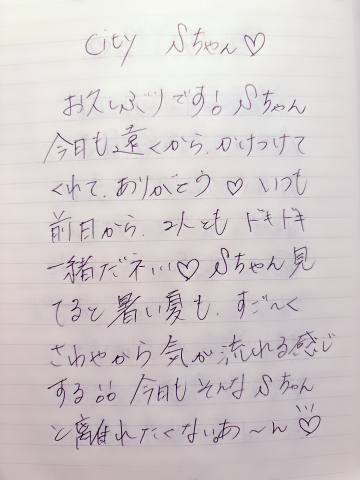 City Sちゃん♡
お久しぶりです! Sちゃん
今日も遠くから、かけつけて
くれて、ありがとう♡ いつも
前日から、2人とも ドキドキ
一緒だネ!!!♡ Sちゃん見
てると暑い夏も、すご〜く
さわやから気が流れる感じ
する!! 今日もそんなSちゃん
と離れたくないあ〜ん♡